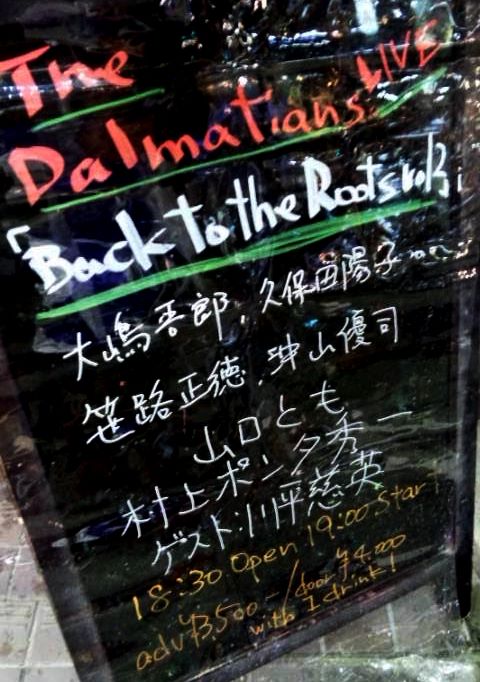 The LIVE
Dalmatians
「Back to the Roots vol.3」
大嶋吾郎, 久保田陽子
笹路正徳, 沖山優司
山口とも
村上ポンタ秀一
ゲスト:川平慈英
18:30 Open 19:00 Start
adv¥3,500-/door¥4,000
with 1 drink!